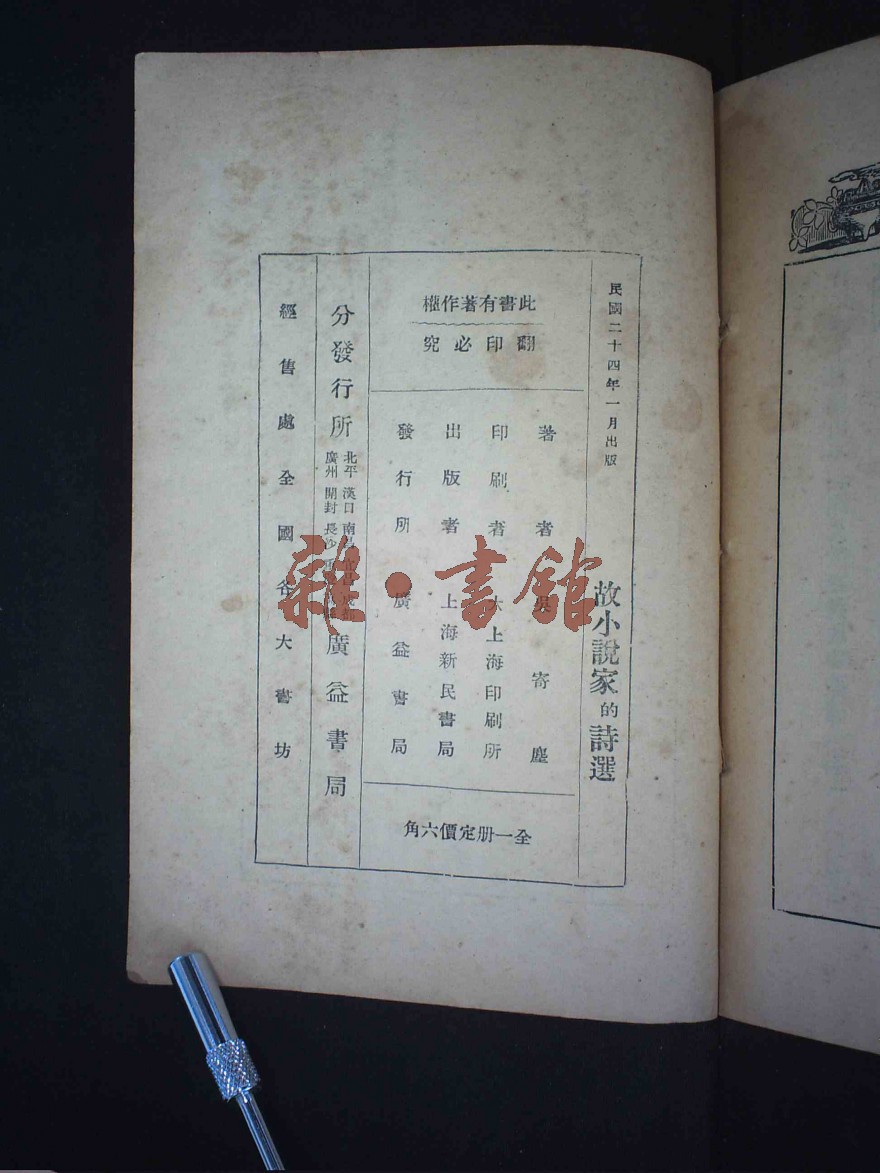 民國二十四年一月出版
故小說家的詩選
此書有著作權
翻印必究
著者 寄塵
印刷者 大上海印刷所
出版者 上海新民書局
發行所 廣益書局
全一册定價六角
分發行所
北平 漢口 南昌
廣州 開封 長沙
廣益書局
經售處全國各大書坊
雜·書館